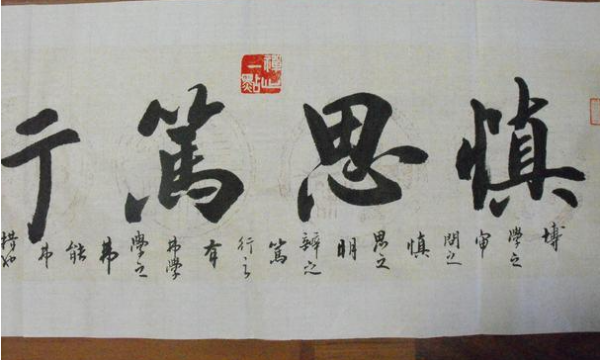 慎思篤行
一點
博學之審問之慎思之明辨之篤行之有弗學學之弗能弗措也